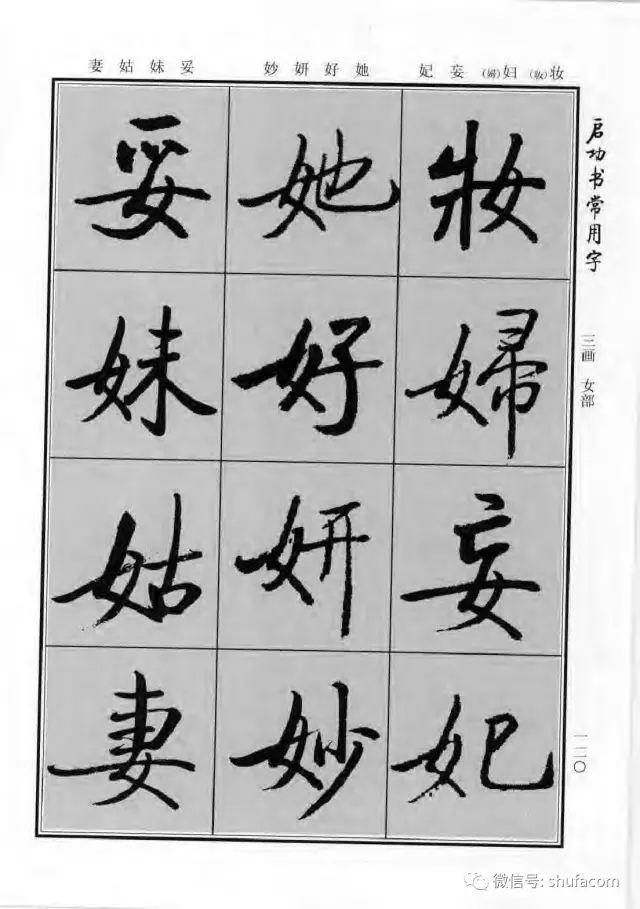 妻姑妹妥 妙妍好她 妃妄妇(婦)妆(妝)
启功书常用字
三画 女部
妝婦妄妃
她好妍妙
妥妹姑妻
一二〇
微信号: shufacom